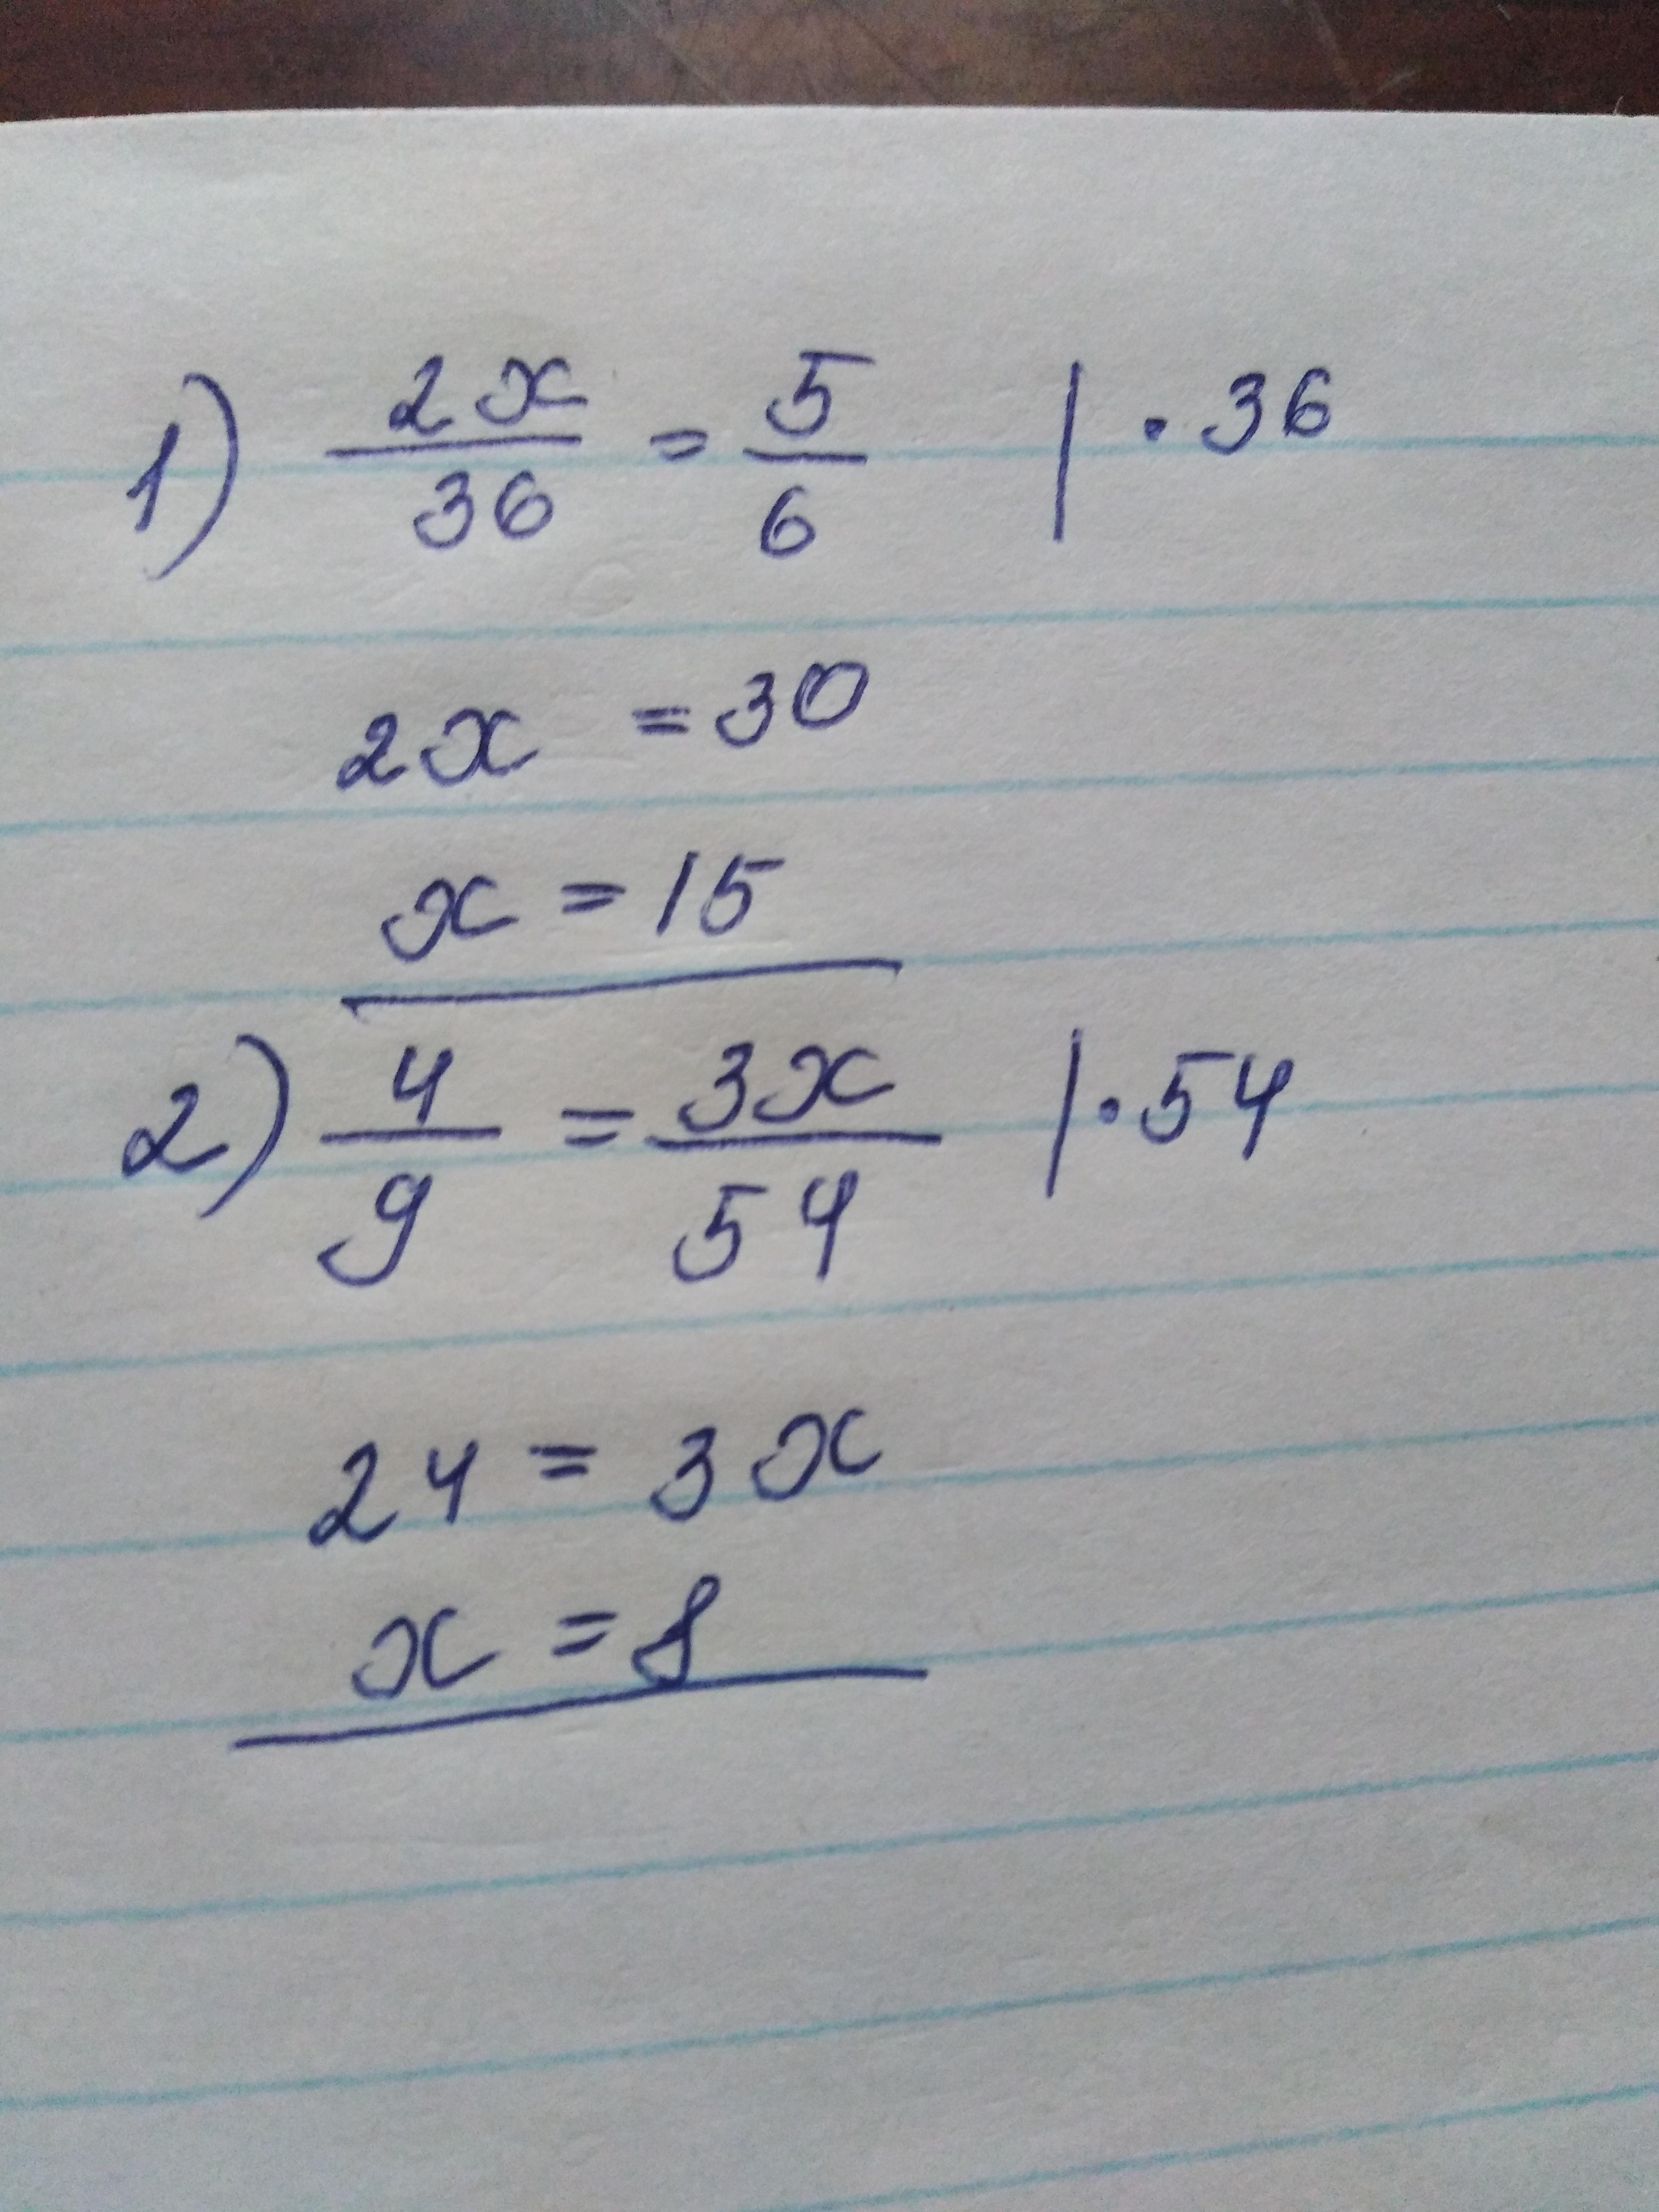 1) 2x/36 = 5/6 | · 36
2x = 30
x = 15
2) 4/9 = 3x/54 | · 54
24 = 3x
x = 8